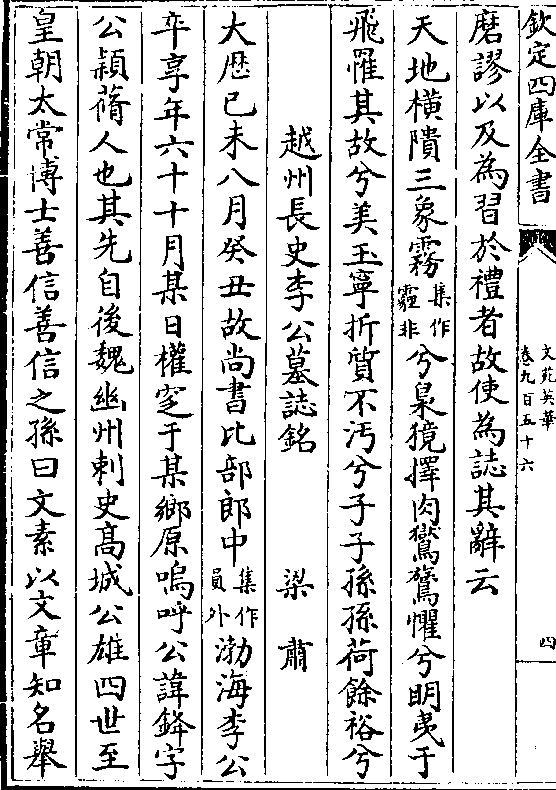 欽定四庫全書
文苑英華
卷九百五十六
四
磨謬以及為習於禮者故使為誌其辭云
天地橫潰三象霧集作霾非兮梟獍擇肉鸑驚懼兮明夷于
飛罹其故兮美玉寧折質不汚兮子子孫孫荷餘裕兮
越州長史李公墓誌銘 梁肅
大歴己未八月癸丑故尚書比部郎中集作員外渤海李公
卒享年六十十月某日權窆于某鄉原嗚呼公諱鋒字
公穎蓨人也其先自後魏幽州刺史高城公雄四世至
皇朝太常博士善信善信之孫曰文素以文章知名舉